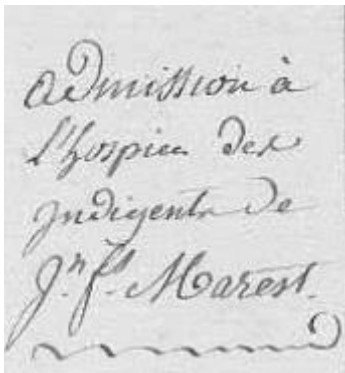 admission à
L'hospice des
indigents de
Jn. fs. Marest.